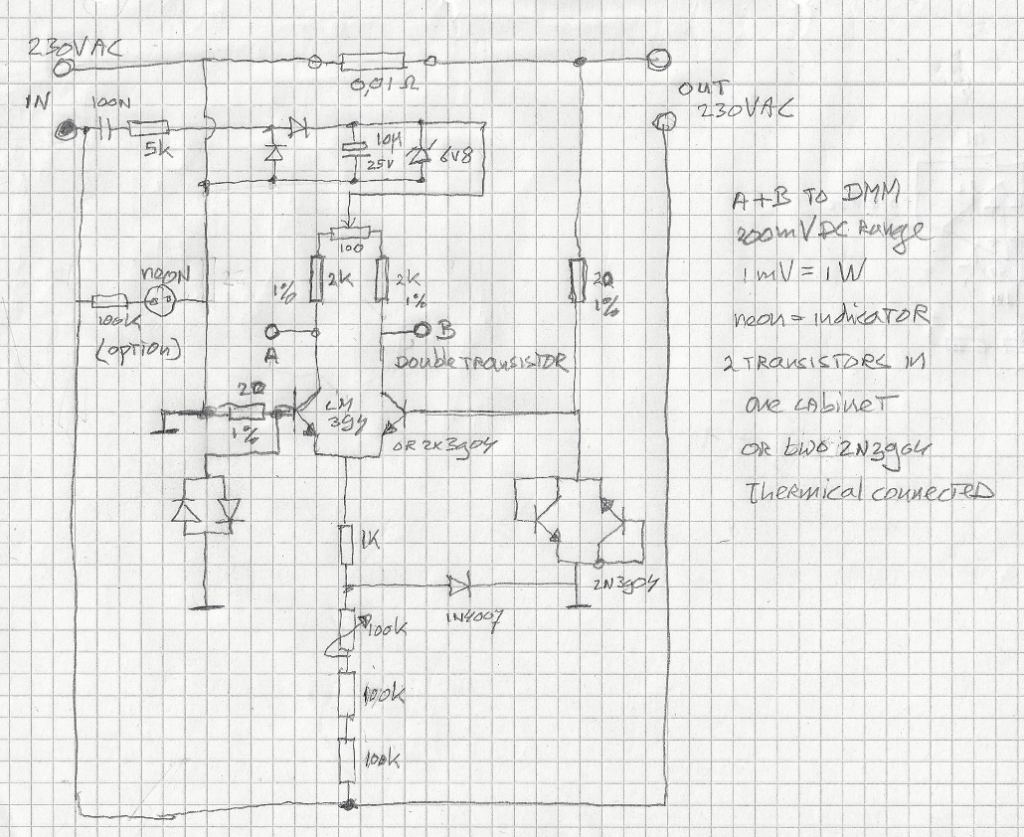 230VAC
0,01Ω
IN
100N
OUT
230VAC
5K
10µ
25V
6V8
A+B TO DMM
200mV DC Range
1mV = 1W
neon = indicatoR
2 TRANSISTORS IN
one cabinet
OR two 2N3904
Thermical connected
100
neoN
1%
2K
2K
1%
1%
100K
(option)
A
B
Double TRANSISTOR
1%
LM
394
OR 2x3904
1K
2N3904
1N4007
100k
100k
100k